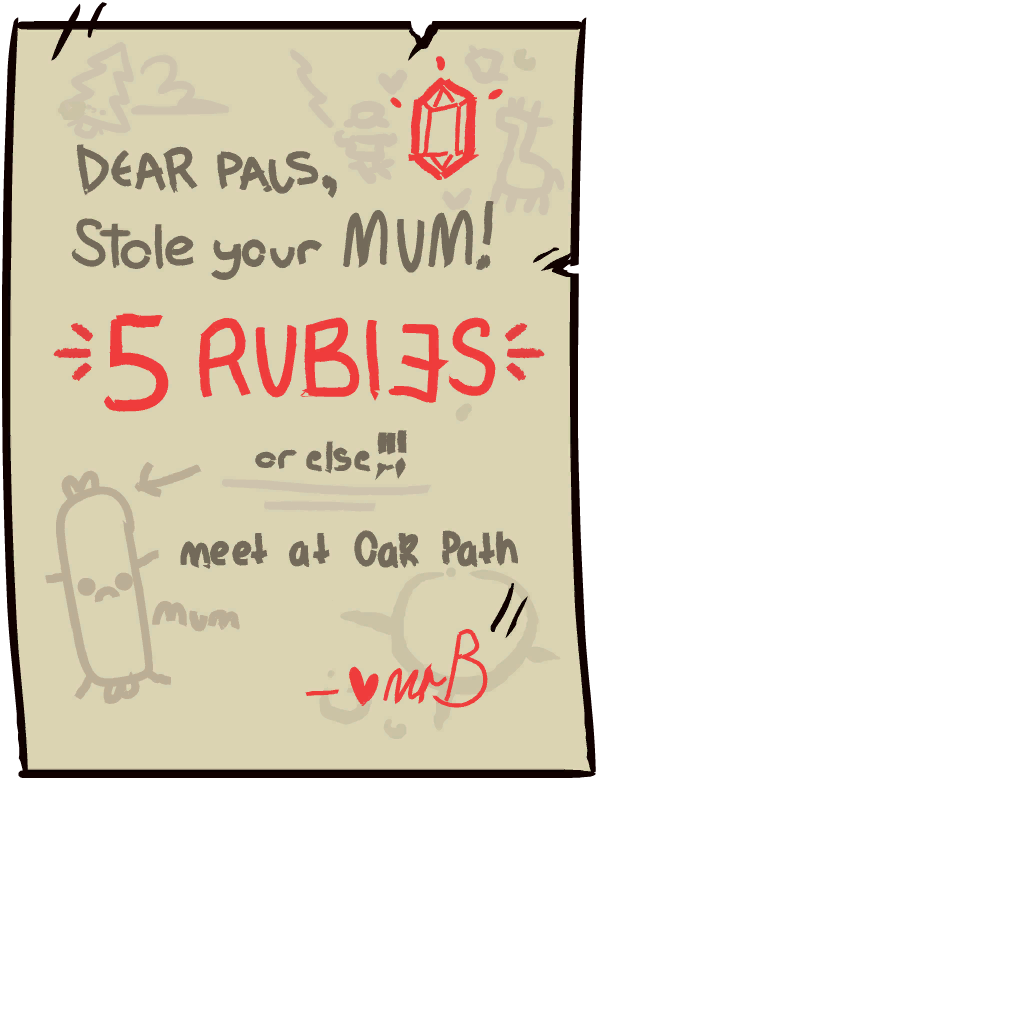 DEAR PALS,
Stole your MUM!
5 RUBIES
or else!!!
meet at Oak Path
mum
- ♥ mr B